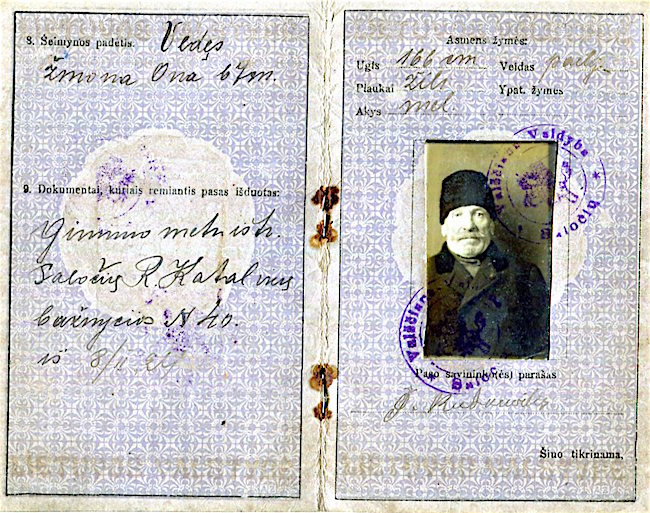 8. Šeimynos padėtis. Vedęs
žmona Ona 67 m.
9. Dokumentai, kuriais remiantis pasas išduotas:
Gimimo metr. ištr.
Saločių R. Katalikų
bažnyčios N 40.
iš 8/I
Asmens žymės:
Ugis 166 cm Veidas pailg.
Plaukai žili Ypat. žymės
Akys mel
Valsčiaus Valdyba
Saločių
Paso savininko(ės) parašas
Šiuo tikrinama,